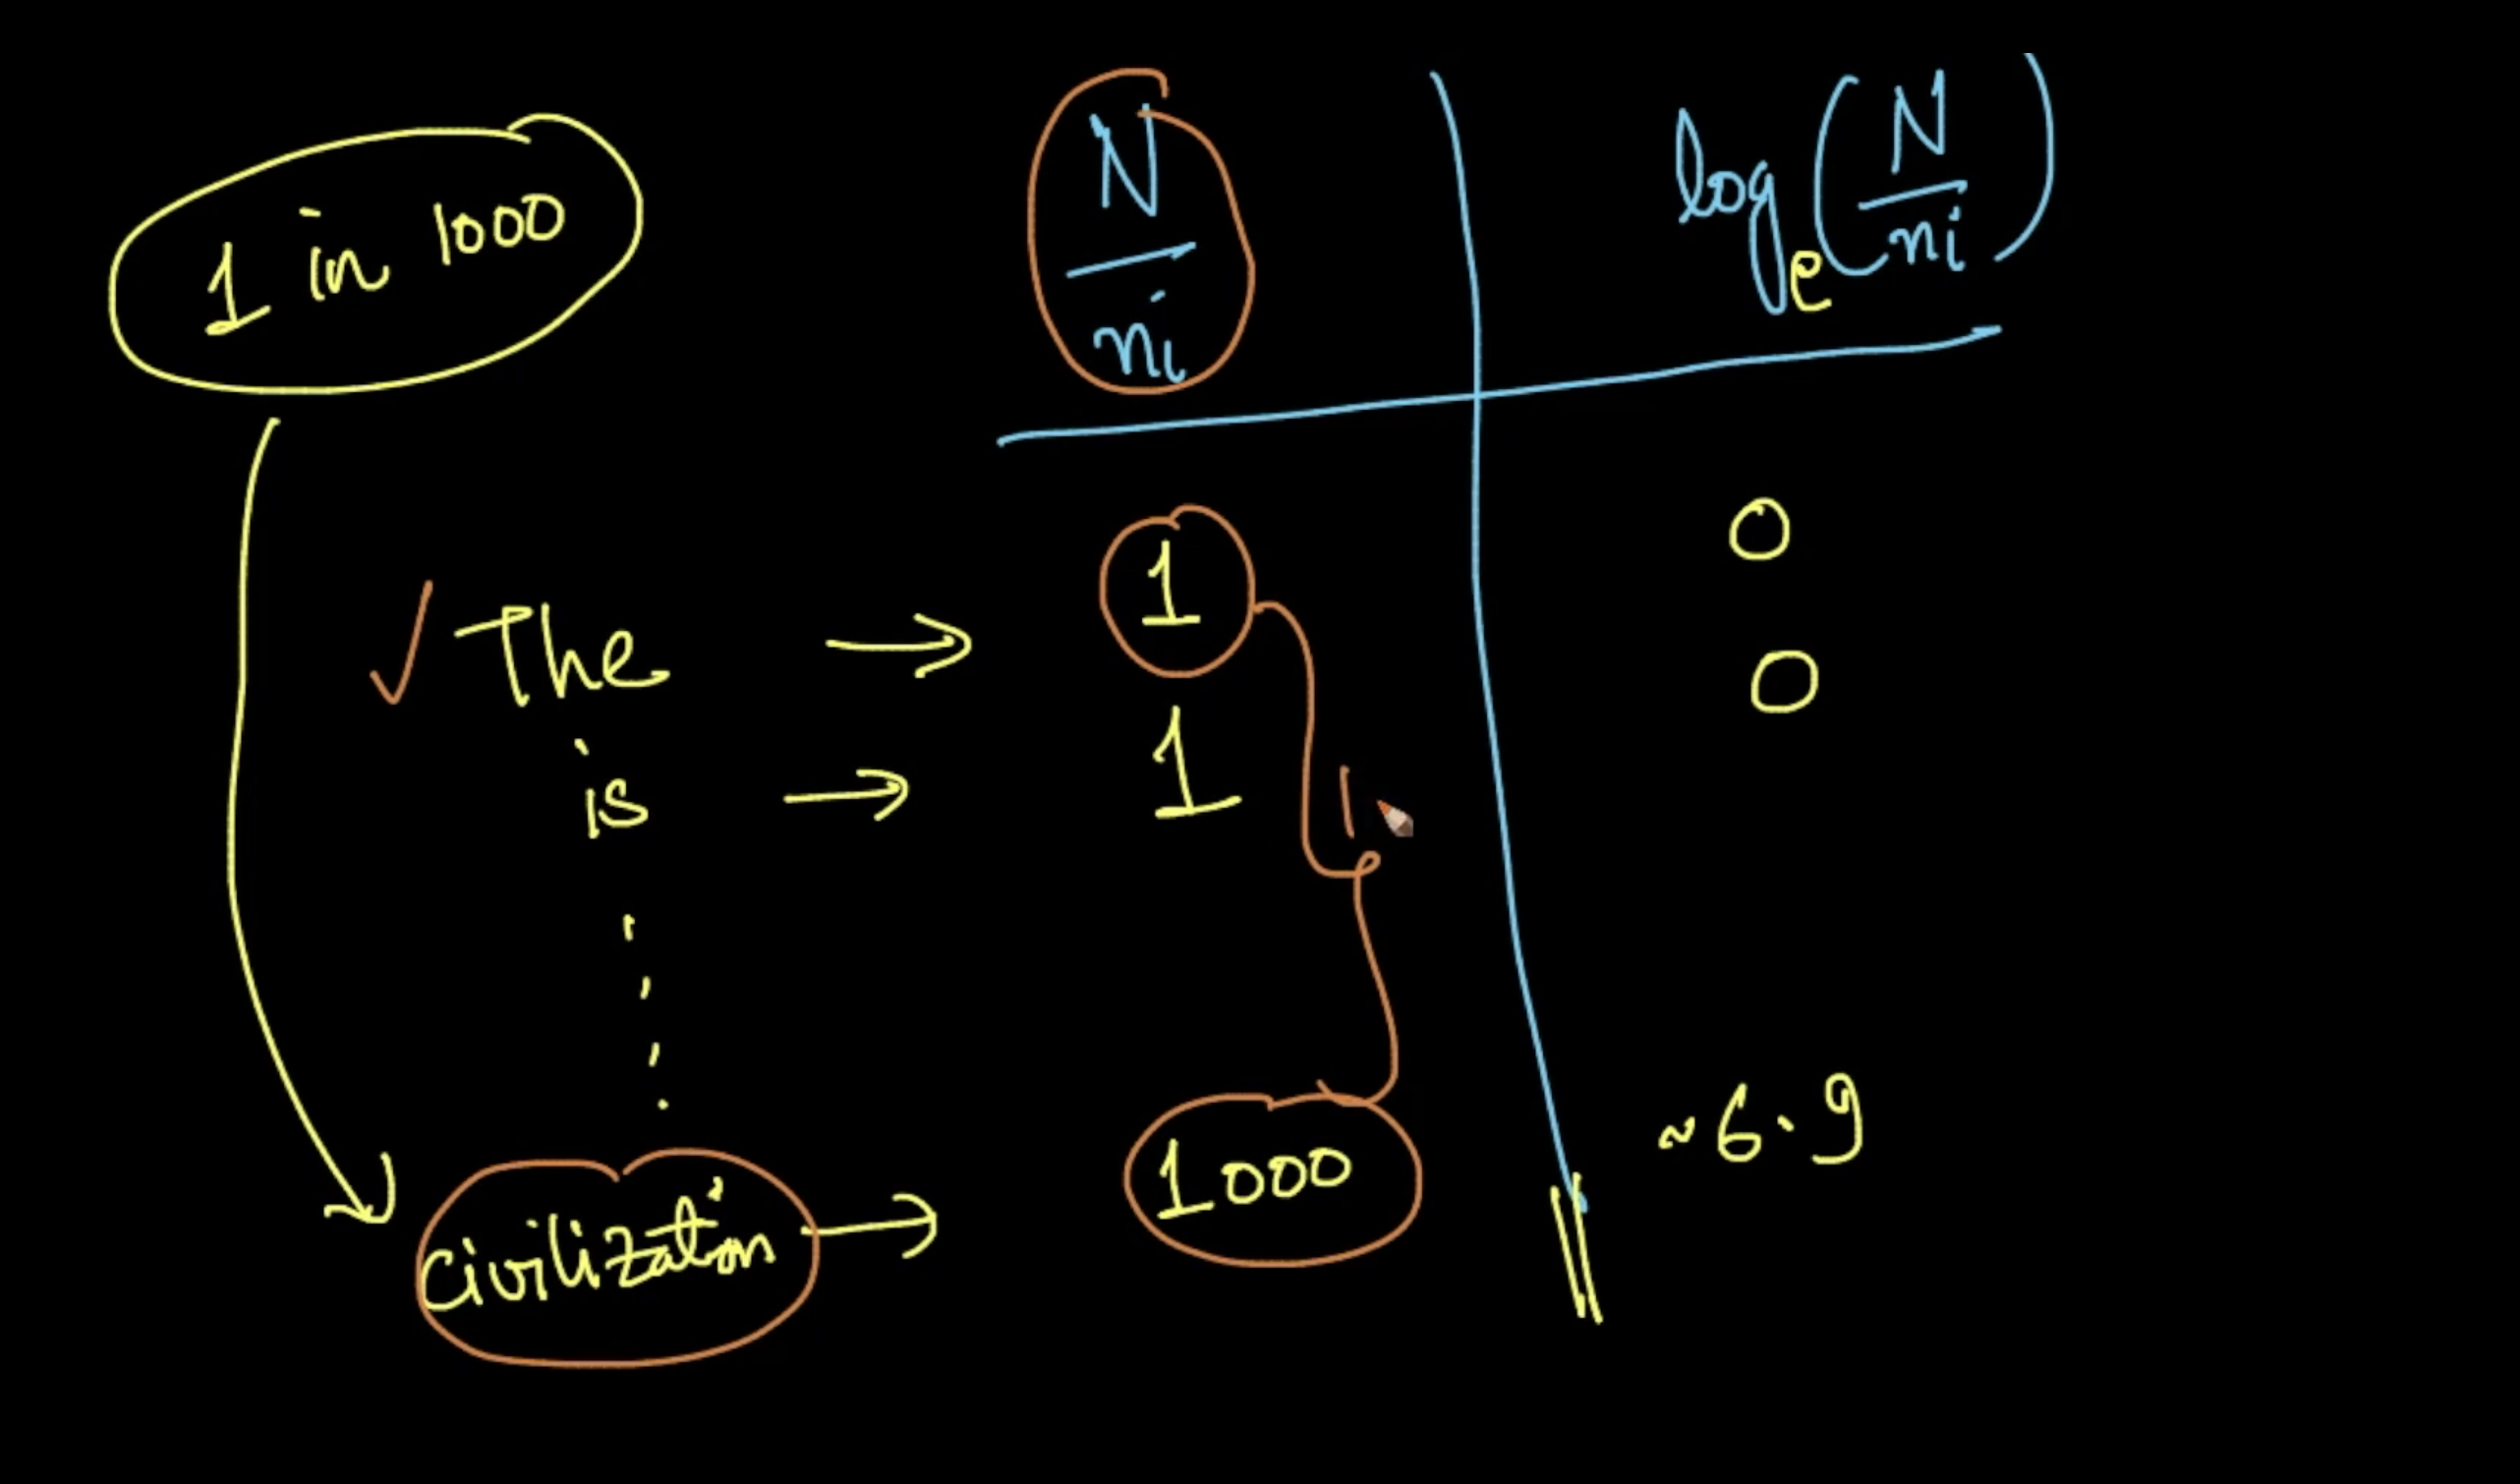 1 in 1000
N/ni
loge(N/ni)
The → 1 0
is → 1 0
civilization → 1000 ~6.9